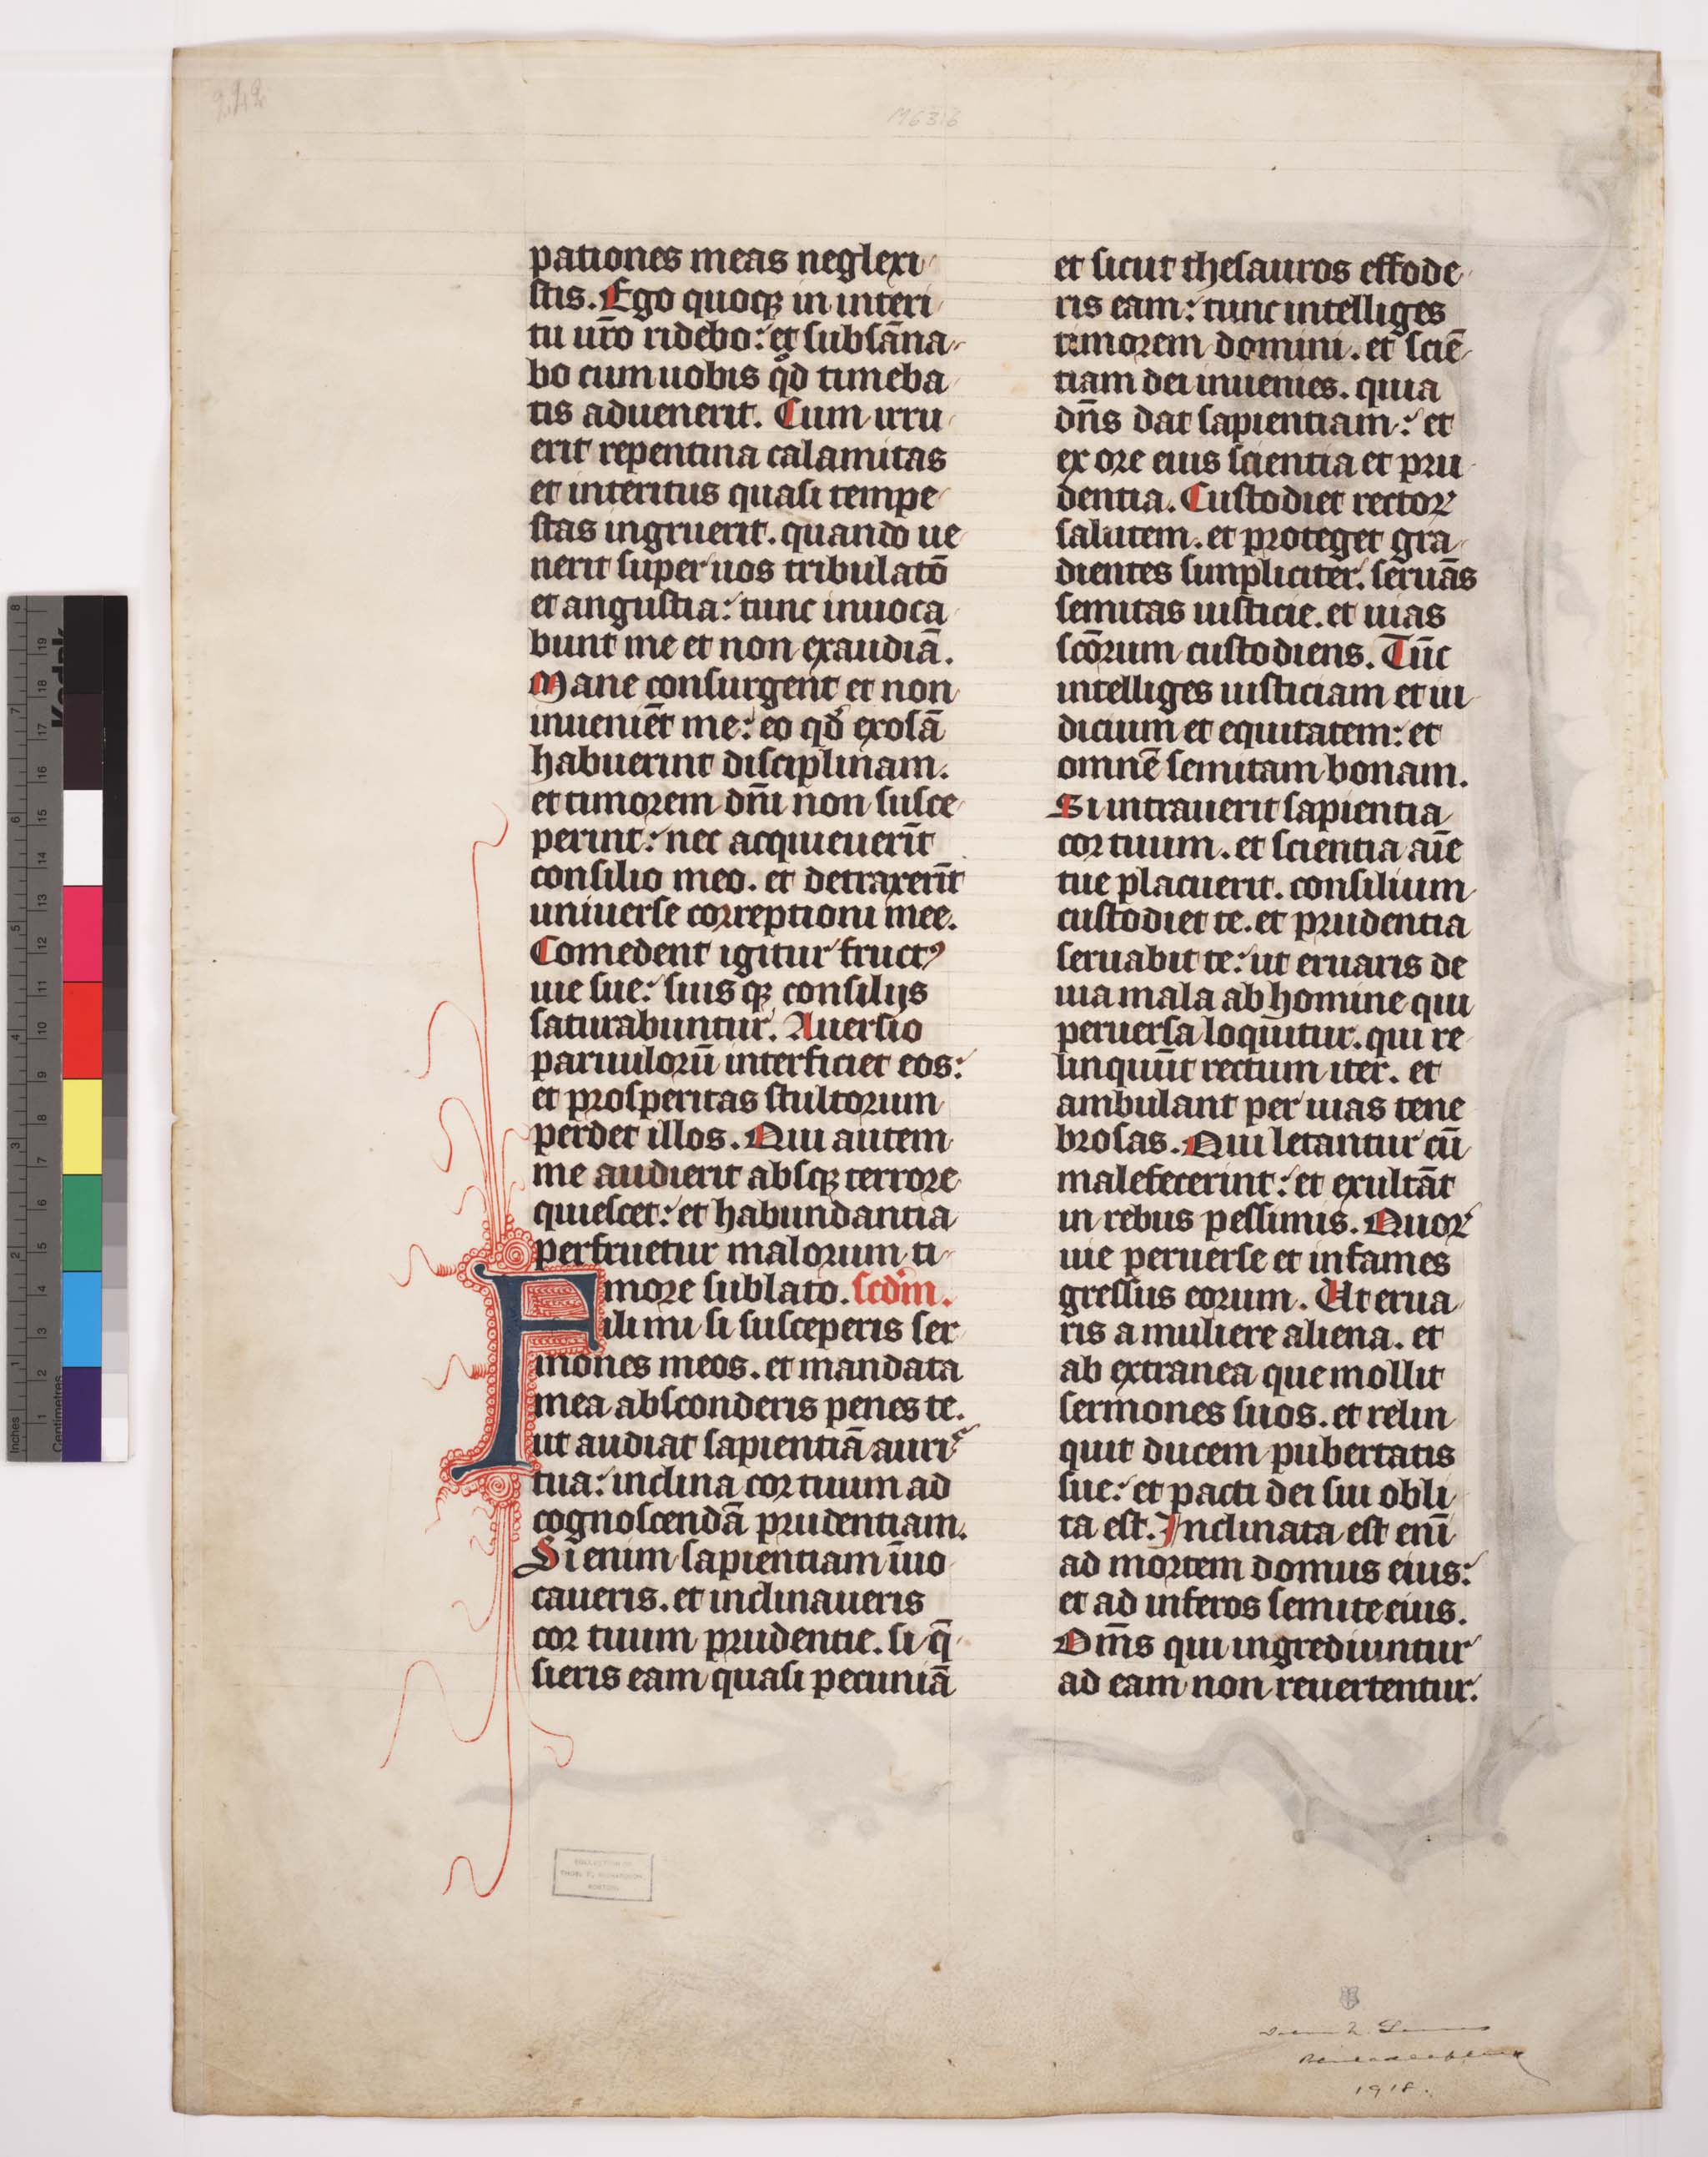 242
M63:6
pationes meas neglexi
stis. Ego quoqꝫ in interi
tu ur̄o ridebo: et subsān̄a
bo cum uobis qͦd timeba
tis aduenerit. Cum irru
erit repentina calamitas
et interitus quasi tempe
stas ingruerit. quando ue
nerit super uos tribulatō
et angustia: tunc inuoca
bunt me et non exaudiā.
Mane consurgent et non
inueniēt me: eo qd̓ exosā
habuerint disciplinam.
et timorem dn̄i non susce
perint: nec acquieuerīt
consilio meo. et detraxerīt
uniuerse correptioni mee.
Comedent igitur fructꝰ
uie sue: suisqꝫ consilijs
saturabuntur. Auersio
paruulorū interficiet eos:
et prosperitas stultorum
perdet illos. Qui autem
me audierit absqꝫ terrore
quiescet: et habundantia
perfruetur malorum ti
more sublato. scd̓m.
Fili mi si susceperis ser
mones meos. et mandata
mea absconderis penes te.
ut audiat sapientiā auriˢ
tua: inclina cor tuum ad
cognoscendā prudentiam.
Si enim sapientiam īuo
caueris. et inclinaueris
cor tuum prudentie. si q̄
sieris eam quasi pecuniā
et sicut thesauros effode
ris eam: tunc intelliges
timorem domini. et sciē
tiam dei inuenies. quia
dn̄s dat sapientiam: et
ex ore eius scientia et pru
dentia. Custodiet rectoꝝ
salutem. et proteget gra
dientes simpliciter. seruās
semitas iusticie. et uias
sc̄orum custodiens. Tūc
intelliges iusticiam et iu
dicium et equitatem: et
omnē semitam bonam.
Si intrauerit sapientia
cor tuum. et scientia aīe
tue placuerit. consilium
custodiet te. et prudentia
seruabit te: ut eruaris de
uia mala ab homine qui
peruersa loquitur. qui re
linquūt rectum iter. et
ambulant per uias tene
brosas. Qui letantur cū
malefecerint: et exultāt
in rebus pessimis. Quoꝝ
uie peruerse et infames
gressus eorum. Ut erua
ris a muliere aliena. et
ab extranea que mollit
sermones suos. et relin
quit ducem pubertatis
sue: et pacti dei sui obli
ta est. Inclinata est enī
ad mortem domus eius:
et ad inferos semite eius.
Om̄s qui ingrediuntur
ad eam non reuertentur.
COLLECTION OF
BOSTON
1918.
Kodak
Inches
Centimetres